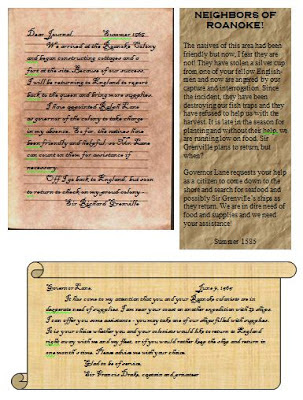 Dear Journal Summer 1585
We arrived at the Roanoke Colony
and began constructing cottages and a
fort at the site. Because of our success,
I will be returning to England to report
back to the queen and bring more supplies.
I have appointed Ralph Lane
as governor of the colony to take charge
in my absence. So far, the natives have
been friendly and helpful, so Mr. Lane
can count on them for assistance if
necessary.
Off I go back to England, but soon
to return to check on my proud colony -
Sir Richard Grenville
NEIGHBORS OF
ROANOKE!
The natives of this area had been
friendly but now, I fear they are
not! They have stolen a silver cup
from one of your fellow English-
men and now are angered by our
capture and interrogation. Since
the incident, they have been
destroying our fish traps and they
have refused to help us with the
harvest. It is late in the season for
planting and without their help, we
are running low on food. Sir
Grenville plans to return, but
when?
Governor Lane requests your help
as a citizen to come down to the
shore and search for seafood and
possibly Sir Grenville's ships as
they return. We are in dire need of
food and supplies and we need
your assistance!
Summer 1585
Governor Lane, June 9, 1586
It has come to my attention that you and your Roanoke colonists are in
desperate need of supplies. I am near your coast on another expedition with 23 ships.
I can offer you some assistance - you may take one of our ships filled with supplies.
It is your choice whether you and your colonists would like to return to England
right away with me and my fleet, or if you would rather keep the ship and return in
one month's time. Please advise me with your choice.
Glad to be of service,
Sir Francis Drake, captain and privateer